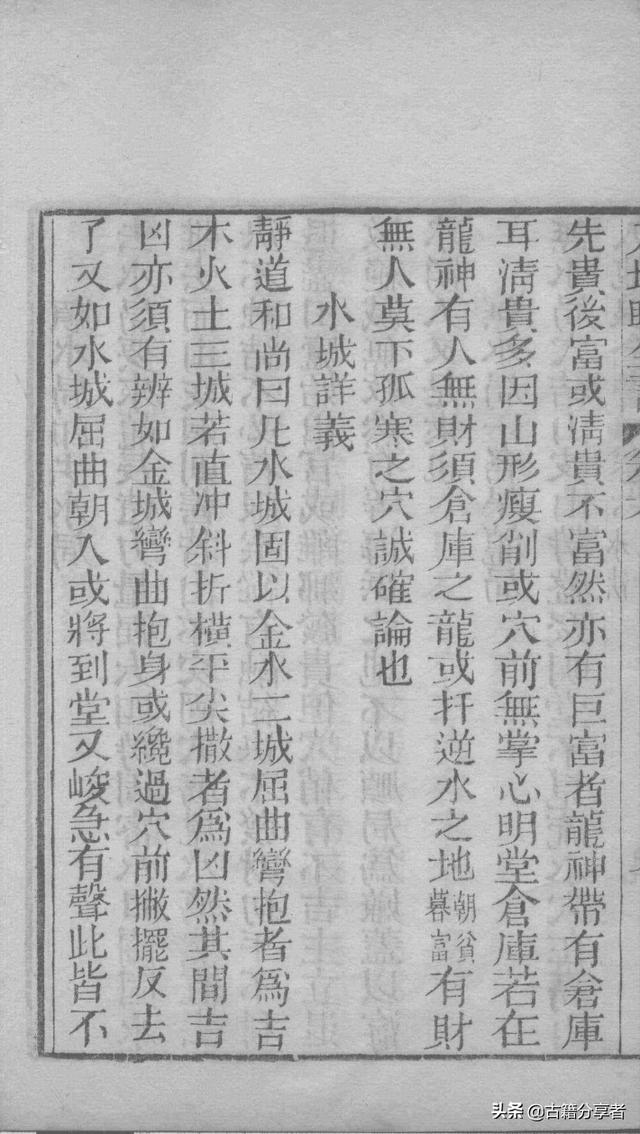 先貴後富或清貴不富然亦有巨富者龍神帶有倉庫
耳清貴多因山形瘦削或穴前無掌心明堂倉庫若在
龍神有人無財須倉庫之龍或扦逆水之地朝貧暮富有財
無人莫下孤寒之穴誠確論也
水城詳義
靜道和尚曰凡水城固以金水二城屈曲彎抱者為吉
木火土三城若直冲斜折橫平尖撒者為凶然其間吉
凶亦須有辨如金城彎曲抱身或纔過穴前撇擺反去
了又如水城屈曲朝入或將到堂又峻急有聲此皆不
头条@古籍分享者